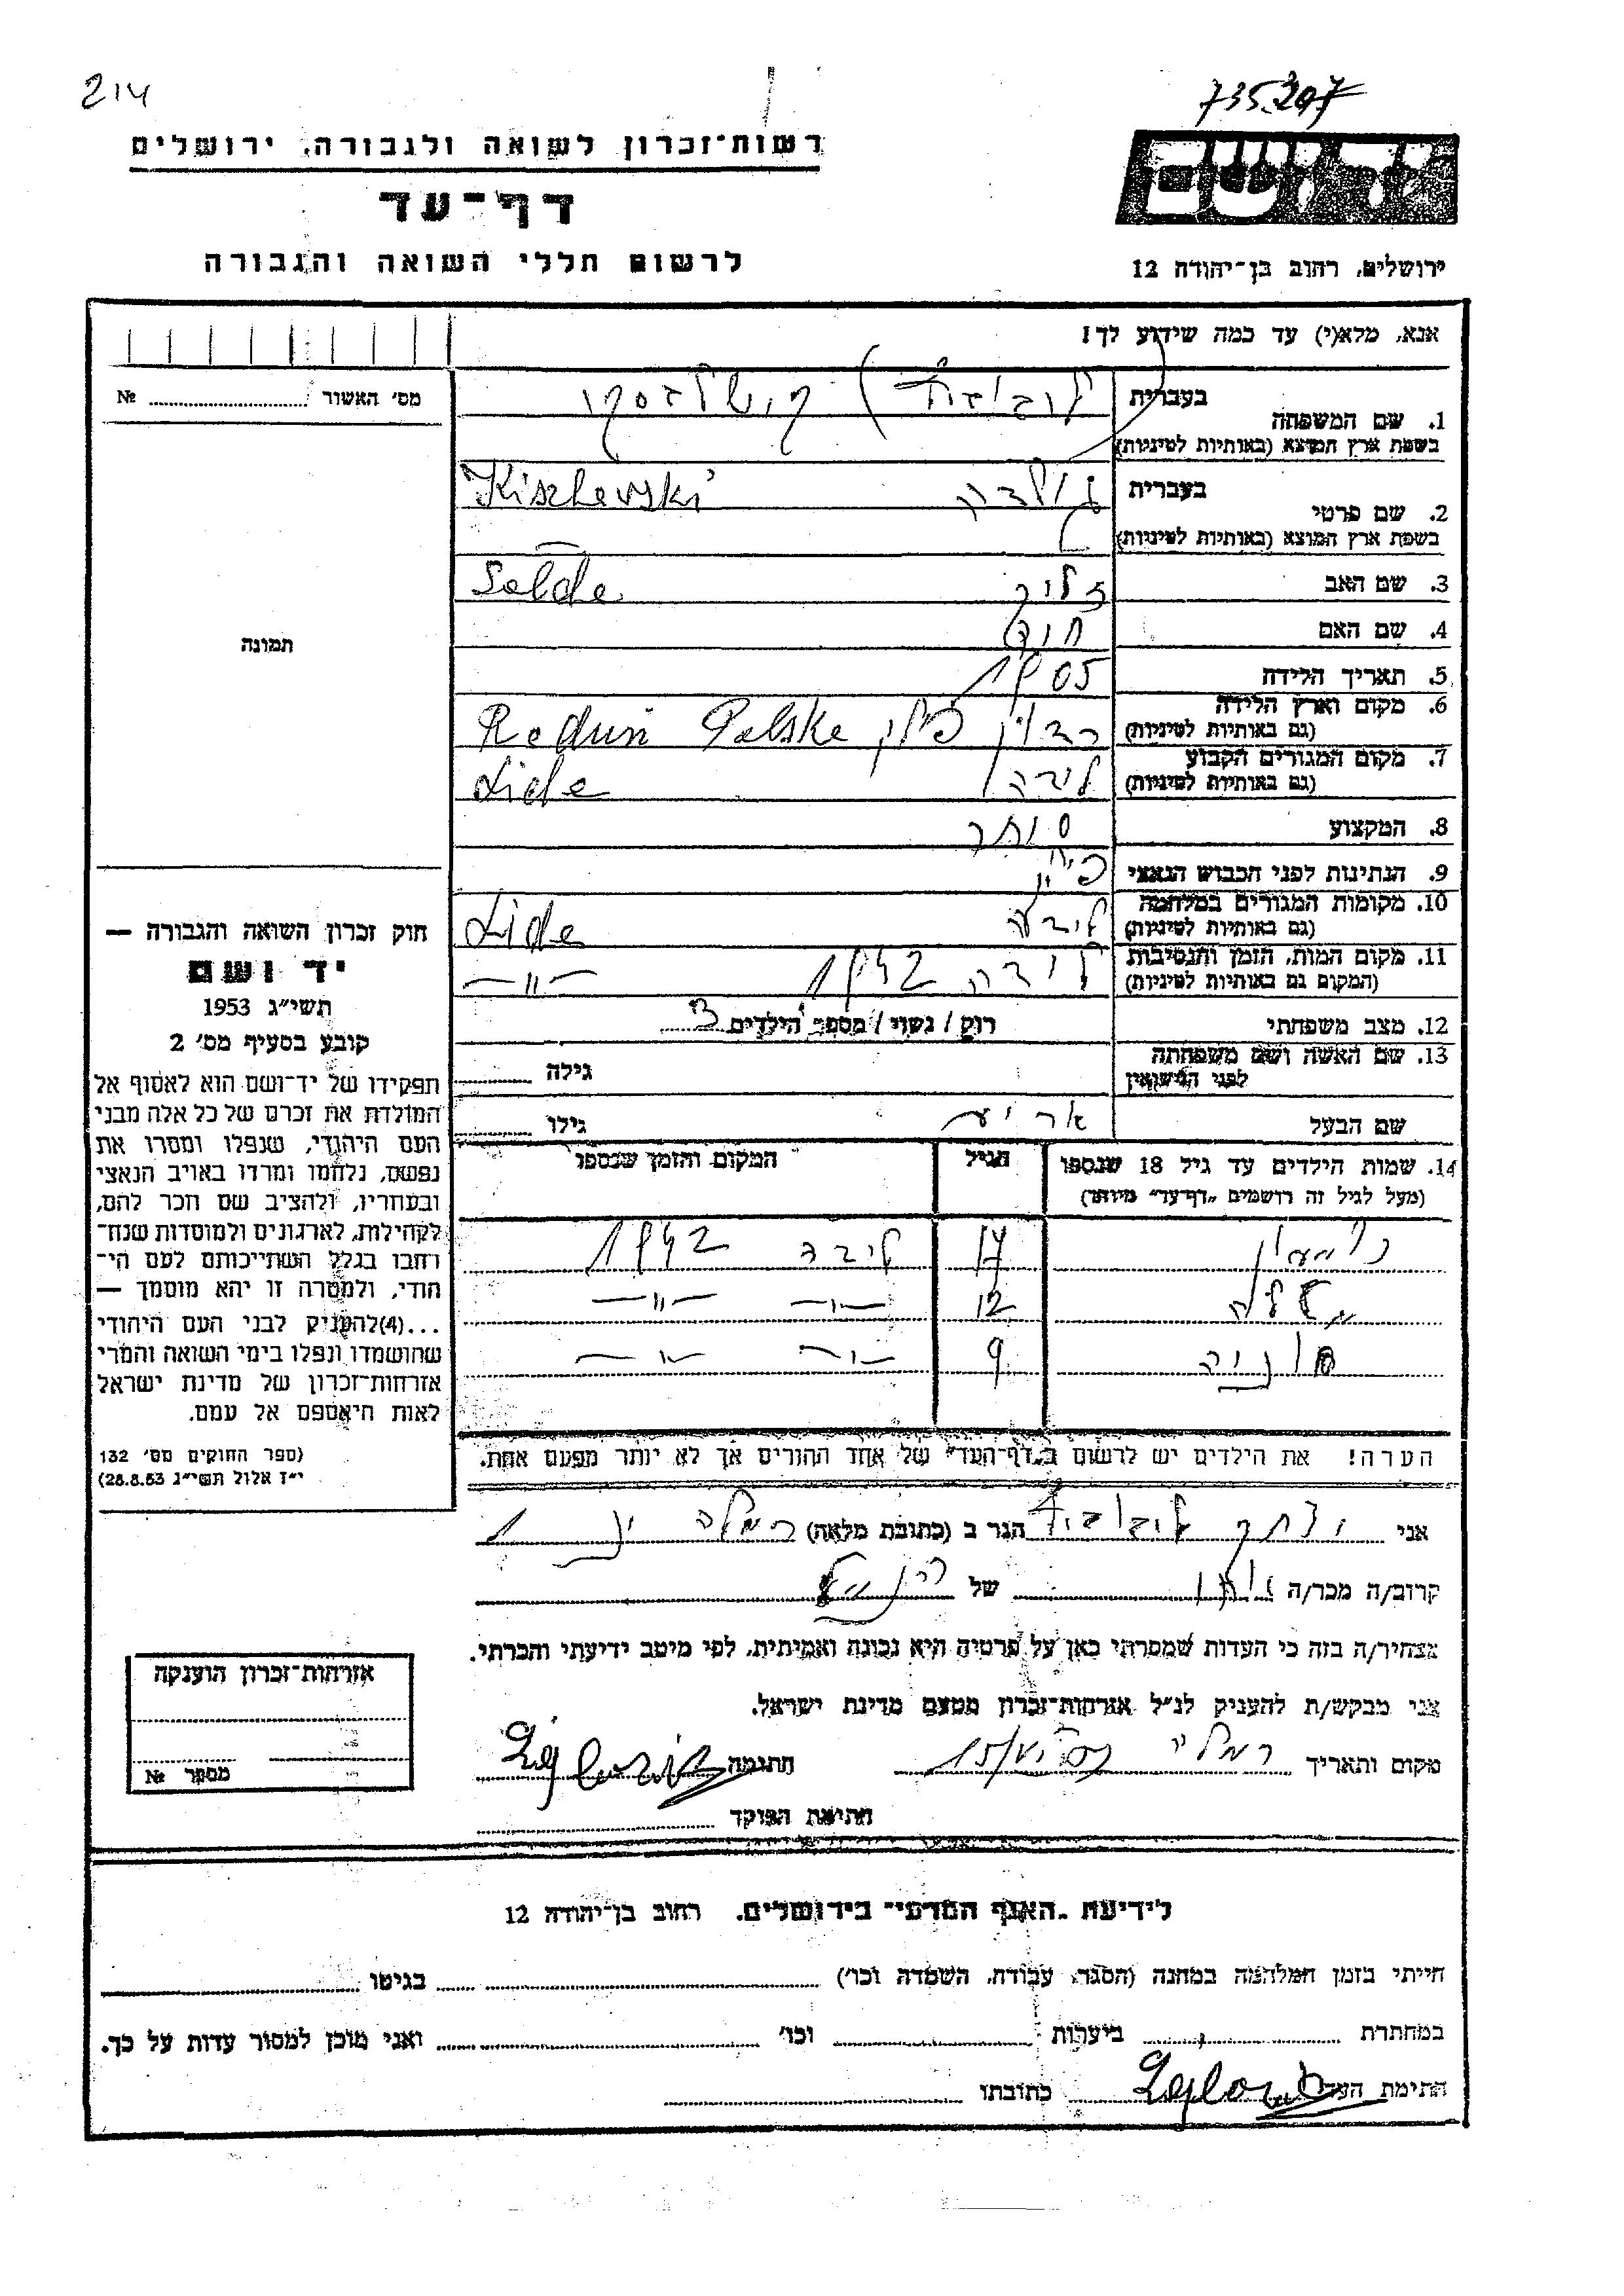 214
735.207
רשות-זכרון לשואה ולגבורה, ירושלים
יד ושם
דף-עד
לרשום חללי השואה והגבורה
ירושלים, רחוב בן-יהודה 12
אנא, מלא(י) עד כמה שידוע לך!
מס׳ האשור № 
1. שם המשפחה
בעברית
בשפת ארץ המוצא (באותיות לטיניות)
Kischevski
2. שם פרטי
בעברית
בשפת ארץ המוצא (באותיות לטיניות)
3. שם האב
4. שם האם
5. תאריך הלידה 1905
6. מקום וארץ הלידה
(גם באותיות לטיניות)
ראדין פולין Raduń Polska
7. מקום המגורים הקבוע
(גם באותיות לטיניות)
לידה Lida
8. המקצוע סוחר
9. הנתינות לפני הכבוש הנאצי
10. מקומות המגורים במלחמה
(גם באותיות לטיניות)
לידה Lida
11. מקום המות, הזמן והנסיבות
(המקום גם באותיות לטיניות)
לידה 1942 —״—
12. מצב משפחתי רוק / נשוי / מספר הילדים 3
13. שם האשה ושם משפחתה
לפני הנישואין
גילה
שם הבעל
גילו
14. שמות הילדים עד גיל 18 שנספו
(מעל לגיל זה רושמים „דף-עד״ מיוחד)
הגיל
המקום והזמן שנספו
17 לידה 1942
12 —״— —״—
סוניה 9 —״— —״—
הערה! את הילדים יש לרשום ב„דף-העד״ של אחד ההורים אך לא יותר מפעם אחת.
תמונה
חוק זכרון השואה והגבורה —
יד ושם
תשי״ג 1953
קובע בסעיף מס׳ 2
תפקידו של יד-ושם הוא לאסוף אל
המולדת את זכרם של כל אלה מבני
העם היהודי, שנפלו ומסרו את
נפשם, נלחמו ומרדו באויב הנאצי
ובעוזריו, ולהציב שם וזכר להם,
לקהילות, לארגונים ולמוסדות שנח-
רחבו בגלל השתייכותם לעם הי-
הודי, ולמטרה זו יהא מוסמך —
...(4)להעניק לבני העם היהודי
שהושמדו ונפלו בימי השואה והמרי
אזרחות-זכרון של מדינת ישראל
לאות היאספם אל עמם.
(ספר החוקים מס׳ 132
י״ז אלול תשי״ג 28.8.53)
אני
הגר ב (כתובת מלאה) רמלה
קרוב/ה מכר/ה
של
מצהיר/ה בזה כי העדות שמסרתי כאן על פרטיה היא נכונה ואמיתית, לפי מיטב ידיעתי והכרתי.
אני מבקש/ת להעניק לנ״ל אזרחות-זכרון מטעם מדינת ישראל.
מקום ותאריך
חתימה
חתימת הפוקד
אזרחות-זכרון הוענקה
מספר №
לידיעת „האגף המדעי״ בירושלים, רחוב בן-יהודה 12
הייתי בזמן המלחמה במחנה (הסגר, עבודה, השמדה וכו׳)
בגיטו
במחתרת
ביערות
וכו׳
ואני מוכן למסור עדות על כך.
חתימת העד
כתובתו